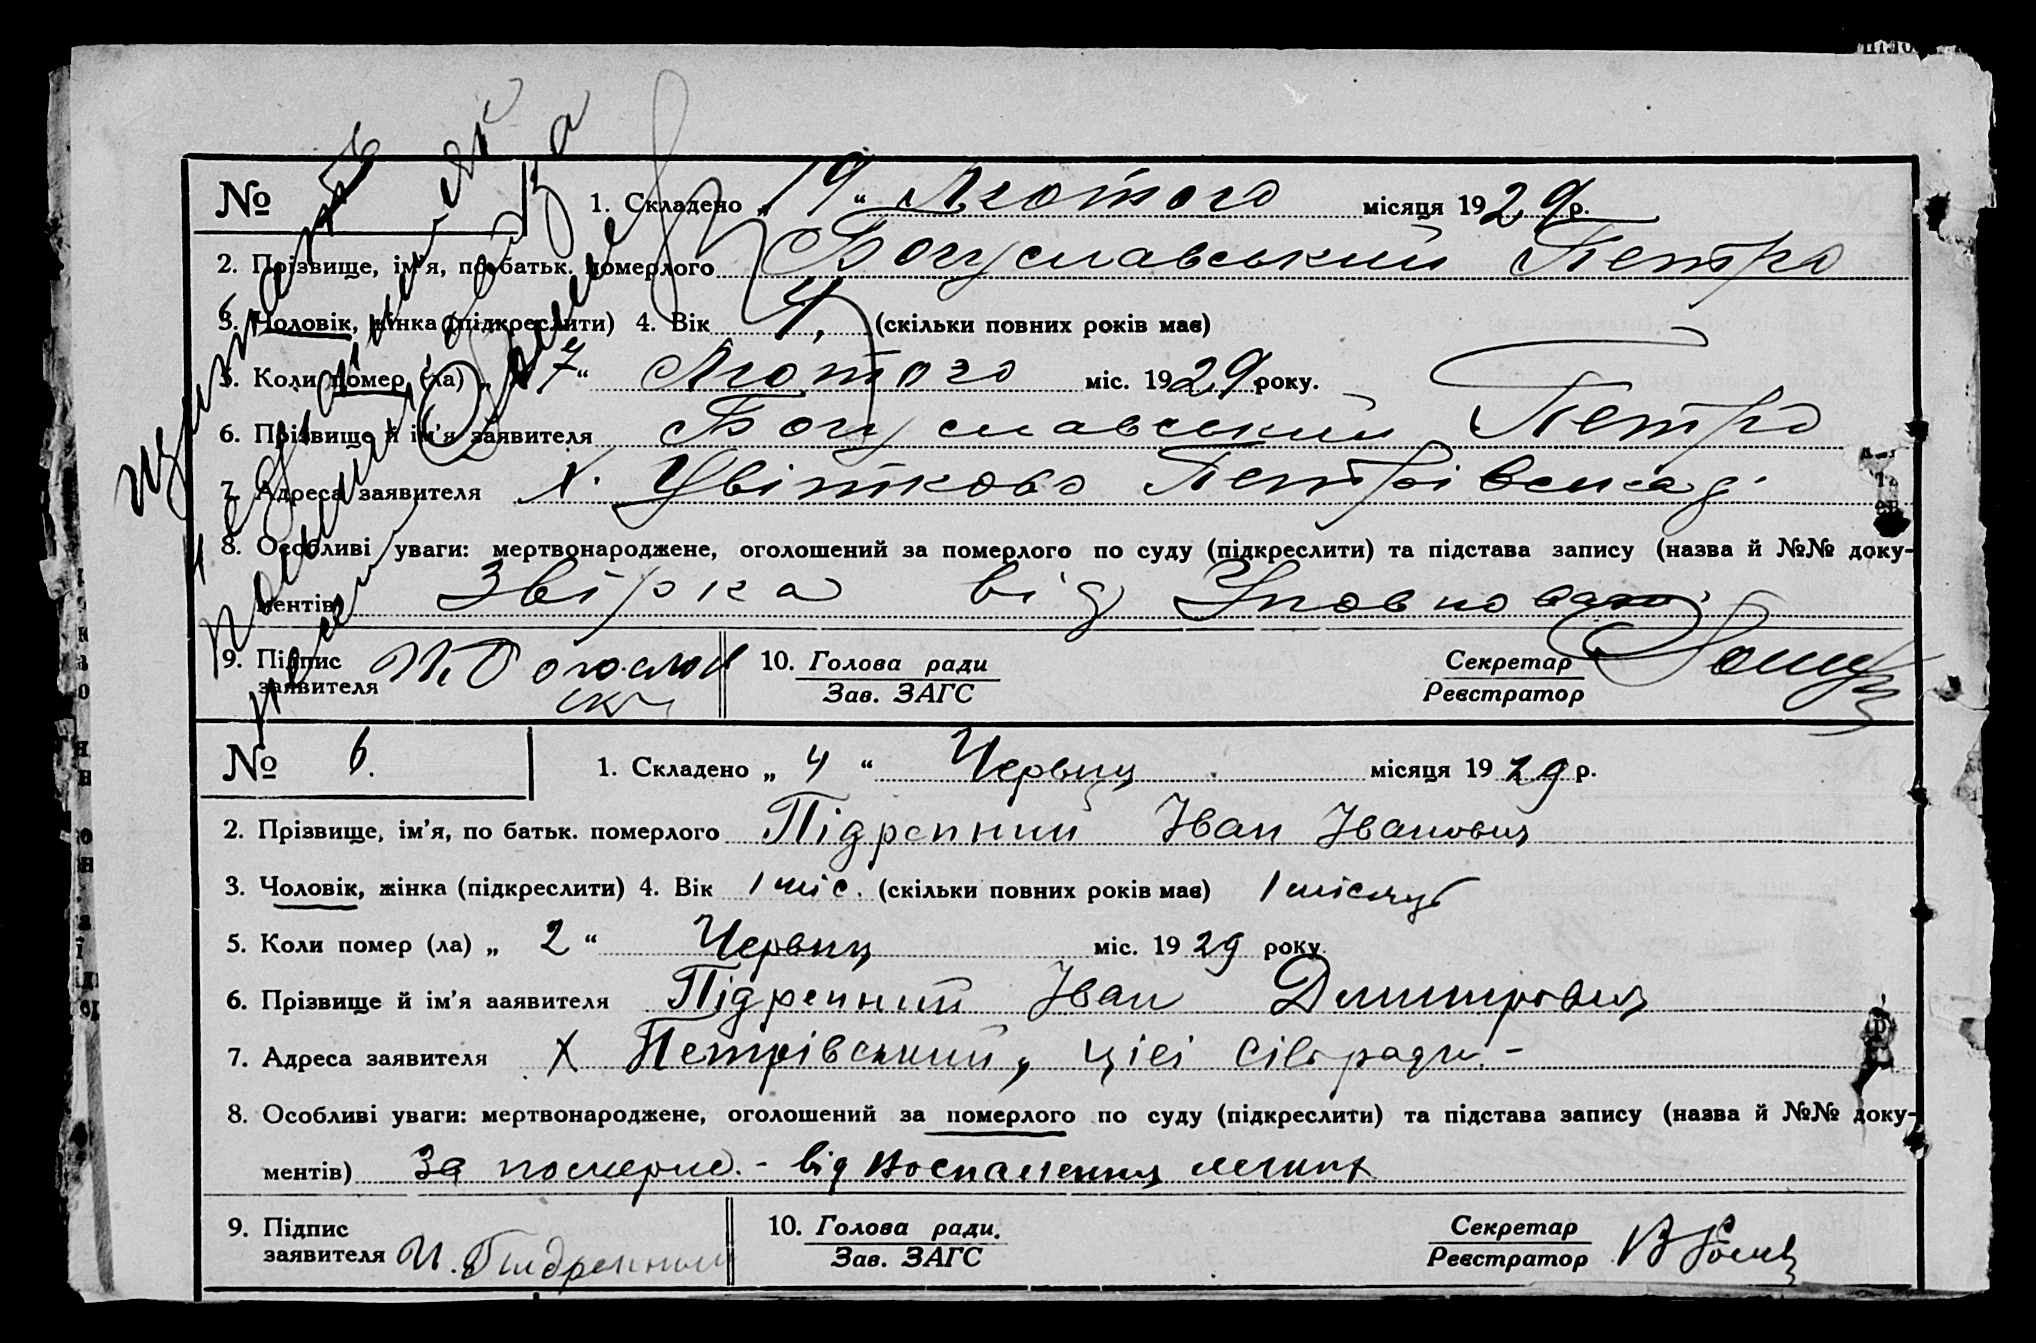 №
1. Складено „ 19 “ Лютого місяця 1929 р.
2. Прізвище, ім’я, по батьк. померлого Богуславський Петро
3. Чоловік, жінка (підкреслити) 4. Вік 4, (скільки повних років має)
5. Коли помер (ла) „ 7 “ Лютого міс. 1929 року.
6. Прізвище й ім’я заявителя Богуславський Петро
7. Адреса заявителя х. Цвітково Петрівської
8. Особливі уваги: мертвонароджене, оголошений за померлого по суду (підкреслити) та підстава запису (назва й №№ доку-
ментів) Звірка від
9. Підпис
заявителя
10. Голова ради
Зав. ЗАГС
Секретар
Реєстратор
№ 6.
1. Складено „ 4 “ Червня місяця 1929 р.
2. Прізвище, ім’я, по батьк. померлого Підрепний Іван Іванович
3. Чоловік, жінка (підкреслити) 4. Вік 1 міс. (скільки повних років має) 1 місяць
5. Коли помер (ла) „ 2 “ Червня міс. 1929 року.
6. Прізвище й ім’я заявителя Підрепний Іван Дмитрович
7. Адреса заявителя х Петрівський, цієї сільради. -
8. Особливі уваги: мертвонароджене, оголошений за померлого по суду (підкреслити) та підстава запису (назва й №№ доку-
ментів) За померло. - від воспаления легких
9. Підпис
заявителя И. Пидрепный
10. Голова ради.
Зав. ЗАГС
Секретар
Реєстратор